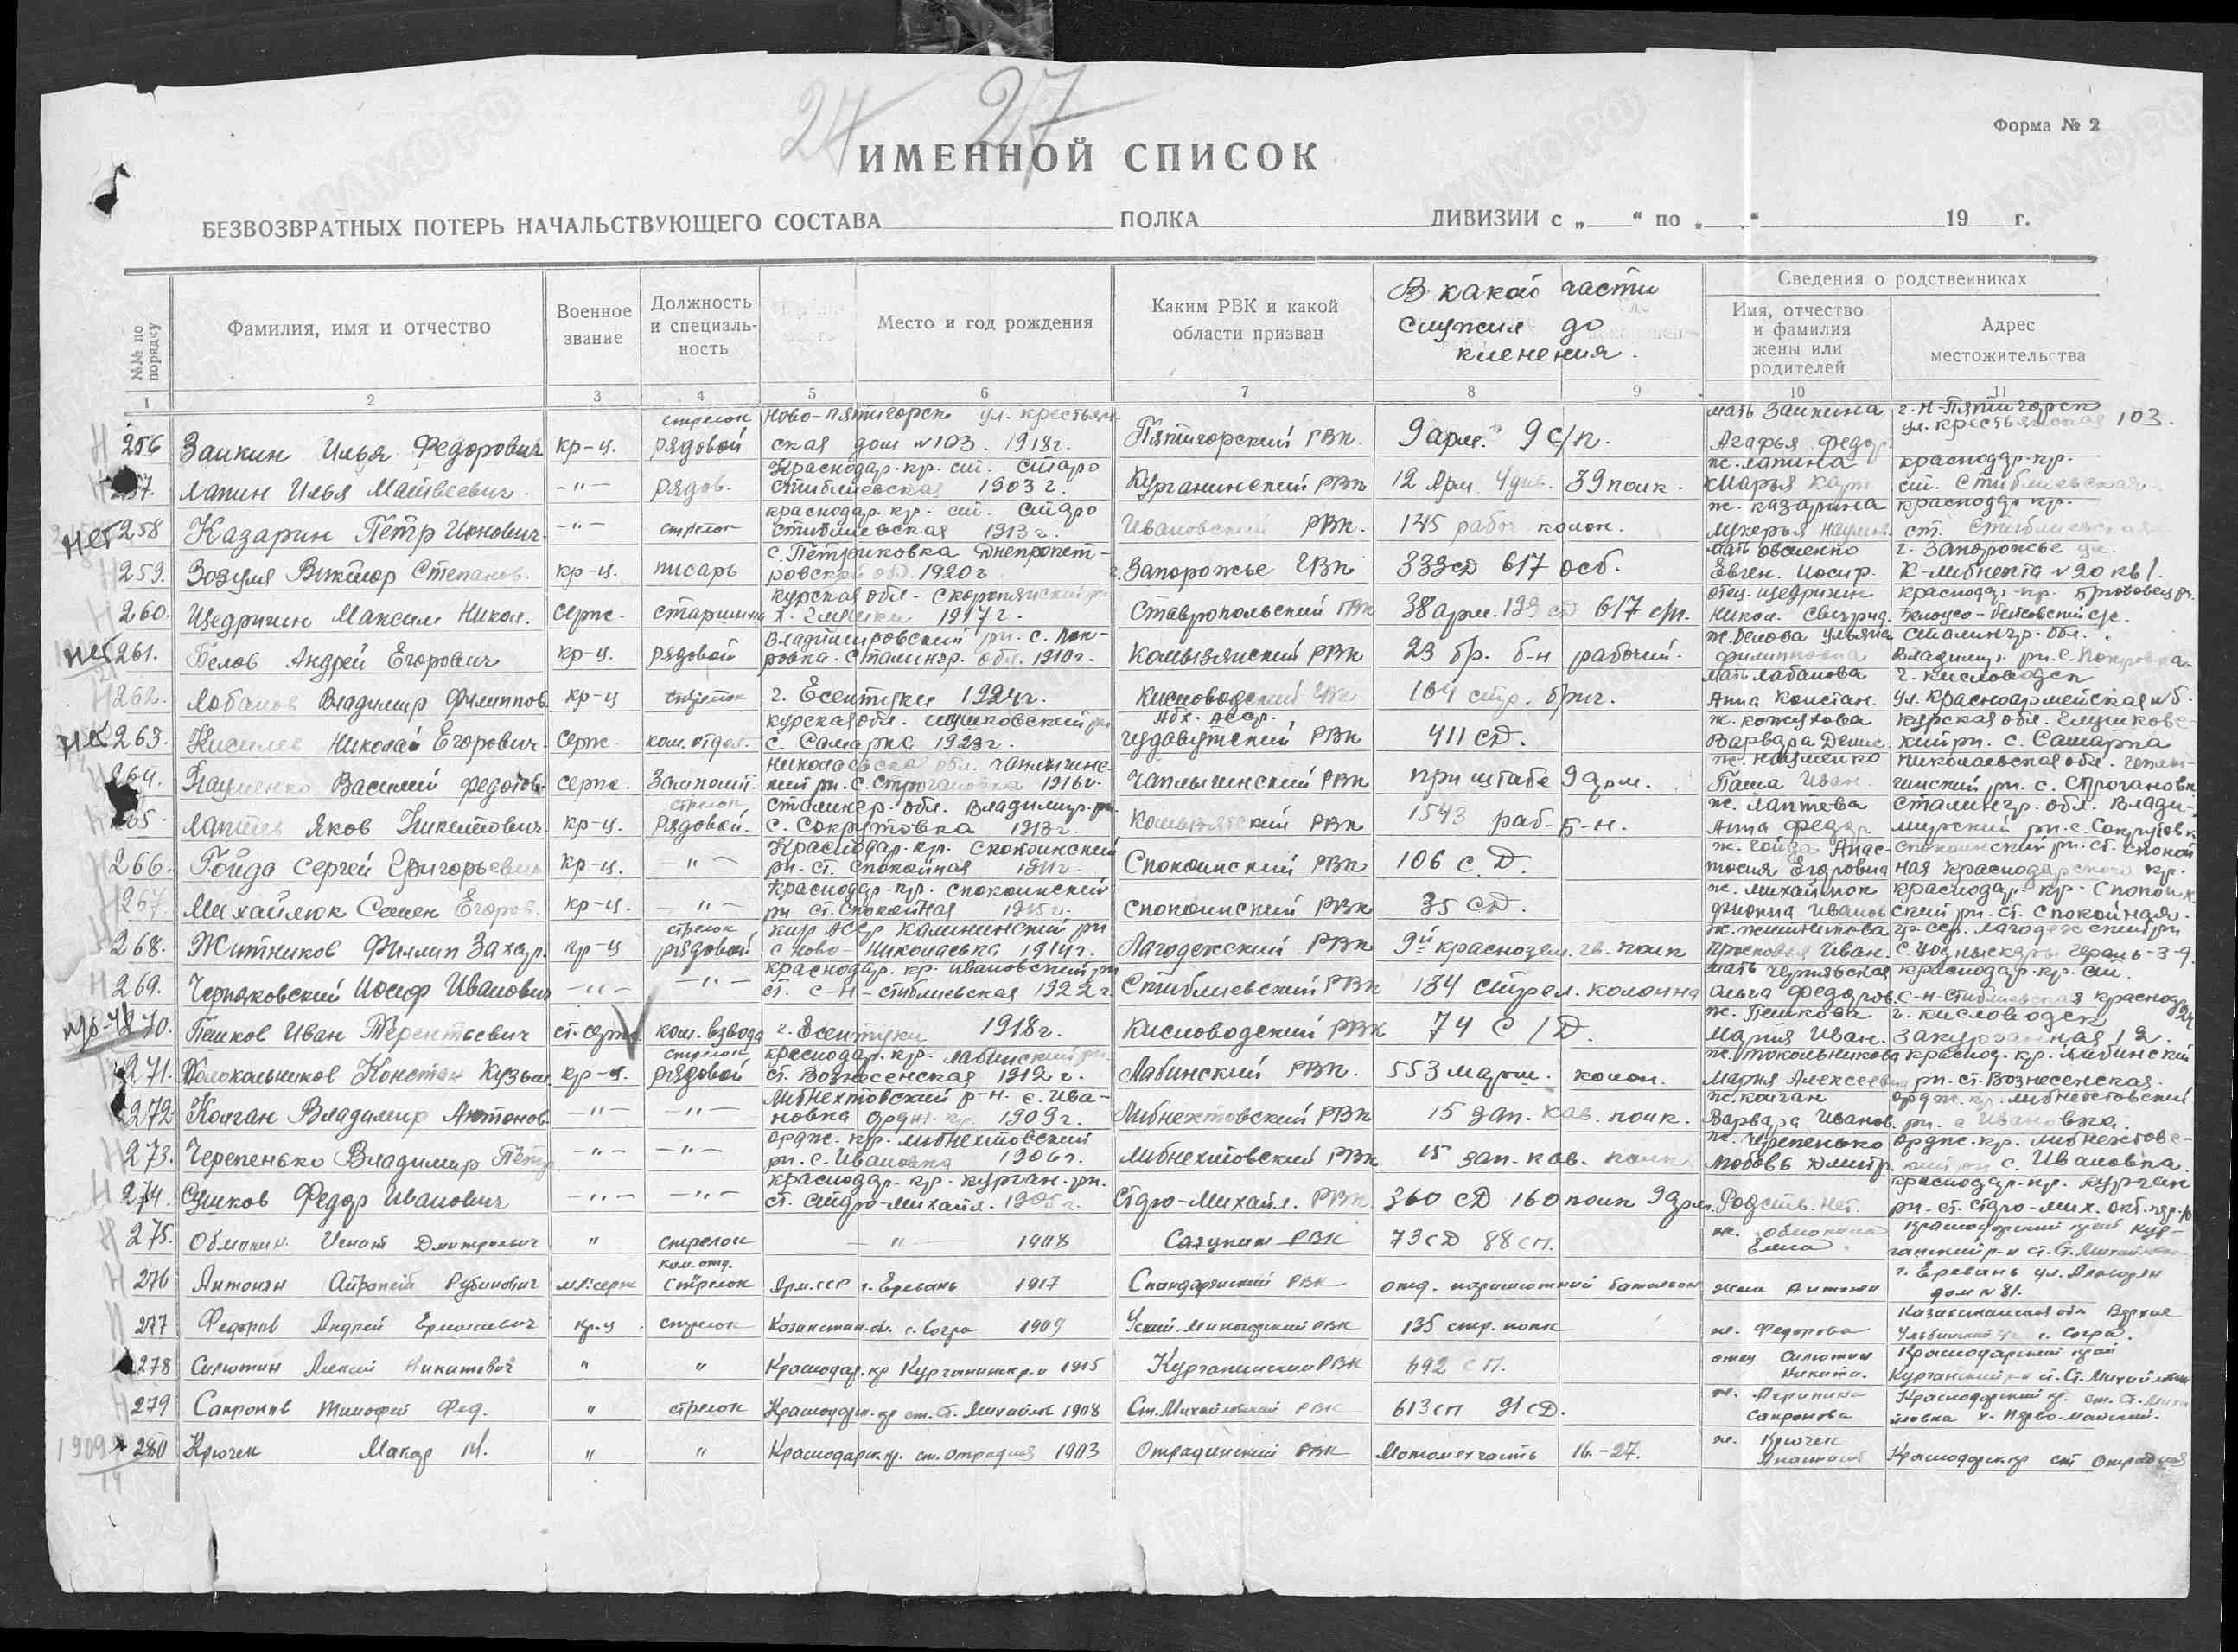 24 27
Форма № 2
ИМЕННОЙ СПИСОК
БЕЗВОЗВРАТНЫХ ПОТЕРЬ НАЧАЛЬСТВУЮЩЕГО СОСТАВА ПОЛКА ДИВИЗИИ с „ “ по „ “ 19 г.
№№ по порядку
Фамилия, имя и отчество
Военное звание
Должность и специальность
Место и год рождения
Каким РВК и какой области призван
В какой части
служил до
пленения.
Сведения о родственниках
Имя, отчество и фамилия жены или родителей
Адрес местожительства
1 2 3 4 5 6 7 8 9 10 11
256 Заикин Илья Федорович кр-ц. стрелок рядовой Ново-пятигорск ул. крестьянская дом №103. 1918г. Пятигорский РВК. 9 арм. 9 с/п. мать Заикина Агафья Федор. г. Н-Пятигорск ул. крестьянская 103.
257. Лапин Илья Матвеевич. -"- рядов. Краснодар. кр. ст. Старо стиблиевская 1903 г. Курганинский РВК 12 Арм. 4 див. 39 полк. ж. Лапина Марья краснодар. кр. ст. Стиблиевская
нет 258 Казарин Петр Ионович -"- стрелок краснодар. кр. ст. Старо стиблиевская 1913 г. Ивановский РВК. 145 рабоч колон. ж. Казарина Лукерья Наумов. краснодар кр. ст. Стиблиевская
259. Зозуля Виктор Степанов. кр-ц. писарь с. Петриковка Днепропетровской обл. 1920 г. г. Запорожье ГВК 339 сд 617 осб. мать Овсиенко Евген. Иосиф. г. Запорожье ул. К-Либнехта №20 кв 1.
260. Щедрихин Максим Никол. Серж. старшина курская обл. 1917 г. Ставропольский ГВК 38 арм. 199 сд 617 с/п. отец Щедрихин Никол. краснодар. кр.
нет 261. Белов Андрей Егорович кр-ц. рядовой Владимировский рн. с. Покровка. Сталингр. обл. 1910 г. Камызякский РВК 23 бр. б-н рабочий. ж. Белова Ульяна Филипповна Сталингр. обл. Владимир. рн. с. Покровка.
262. Лобанов Владимир Филиппов. кр-ц стрелок г. Есентуки 1924 г. Кисловодский ГВК 164 стр. бриг. мать Лабанова Анна Констан. г. Кисловодск ул. Красноармейская №6.
263. Киселев Николай Егорович. Серж. ком. отдел. курская обл. Глушковский рн с. Самарка 1923 г. Абх. АССР. гудаутский РВК 411 СД. ж. Кожухова Варвара Денис. курская обл. Глушковский рн. с. Самарка
264. Науменко Василий Федотов. Серж. Зам полит. Николаевская обл. Чаплынский рн. с. Строгановка 1916 г. Чаплынский РВК при штабе 9 арм. ж. Науменко Паша Иван Николаевская обл. рн. с. Строгановк
265. Лаптев Яков Никитович кр-ц. стрелок рядовой. Сталингр. обл. Владимир. рн. с. Сокрутовка 1913 г. Камызякский РВК 1543 раб. б-н. ж. Лаптева Анна Федор Сталингр. обл. Владимирский рн. с. Сокрутовк
266. Гойда Сергей Григорьевич кр-ц. -"- Краснодар. кр. Спокоинский рн. ст. Спокойная 1911 г. Спокоинский РВК 106 с. Д. ж. Гойда Анастосия Егоровна Спокоинский рн. ст. Спокойная Краснодарского кр.
267. Михайлюк Семен Егоров. кр-ц. -"- Краснодар. кр. спокоинский рн ст. Спокойная 1915 г. Спокоинский РВК 35 СД. ж. Михайлюк Иванов краснодар. кр. Спокоинский рн. ст. Спокойная.
268. Житников Филлип Захар. кр-ц стрелок рядовой кир АССР Калининский рн с. Ново-Николаевка 1914 г. Лагодехский РВК 9й краснозем. гв. полк ж. Житникова Просковья Иван. гр ССР. Лагодехский рн
269. Черняховский Иосиф Иванович -"- -"- краснодар. кр. Ивановский рн ст. С-Н-стиблиевская 1922 г. Стиблиевский РВК 134 стрел. колонна мать Чернявская Ольга Федоров. краснодар. кр. ст. С-Н-Стиблиевская краснодар
270. Пешков Иван Терентьевич ст. серж. ком. взвода г. Есентуки 1918 г. Кисловодский РВК 74 с/Д. ж. Пешкова Мария Иван. г. Кисловодск 12.
271. Колокольников Констан Кузьм. кр-ц. стрелок рядовой краснодар. кр. Лабинский рн. ст. Вознесенская 1912 г. Лабинский РВК. 553 марш. колон. ж. Колокольникова Мария Алексеевна краснод. кр. Лабинский рн. ст. Вознесенская.
272. Колган Владимир Антонов. -"- -"- Либнехтовский р-н. с. Ивановка Ордж. кр. 1909 г. Либнехтовский РВК 15 зап. кав. полк. ж. Колган Варвара Иванов. Ордж. кр. Либнехтовский рн. с Ивановка
273. Черепенько Владимир Петр -"- -"- ордж. кр. Либнехтовский рн. с. Ивановка 1906 г. Либнехтовский РВК 15 зап. кав. полк ж. Черепенько Любовь Дмитр. Ордж. кр. Либнехтовский рн с. Ивановка.
274. Сушков Федор Иванович -"- -"- краснодар. кр. курган. рн. ст. Старо-Михайл. Старо-Михайл. РВК 360 СД 160 полк 9 арм. Родств. Нет. краснодар. кр. курган рн. ст. Старо-Мих.
275. Игнат Дмитриевич " стрелок -"- 1908 РВК 73 СД 88 сп. ж. Елена Краснодарский край Курганский р-н ст. Ст. Михайловск
276 Антонян Айрапет Рубинович мл. серж ком. отд. Стрелок Арм. ССР г. Ереван 1917 Спандарянский РВК отд. парашютный батальон жена Антонян г. Еревань ул. дом №81.
277 Федоров Андрей Ермолаевич кр-ц стрелок Казахстан. об. с. Согра 1909 РВК 135 стр. полк ж. Федорова Казахстанская обл с. Согра.
278 Силютин Алексей Никитович " " Краснодар. кр Курганинск р-н 1915 Курганинский РВК 692 СП. отец Силютин Никита. Краснодарский край Курганский р-н ст. Ст. Михайловск
279 Сапронов Тимофей Фед. " стрелок Краснодарск. кр ст. Ст. Михайлов 1908 Ст. Михайловский РВК 613 сп 91 сД. ж. Сапронова Краснодарский кр. ст. Ст. Михайловка х. Перво-майский.
280 Крючек Макар М. " " Краснодарск кр. ст. Отрадная 1903 Отрадинский РВК 16-27. ж. Крючек Краснодарск кр ст Отрадная